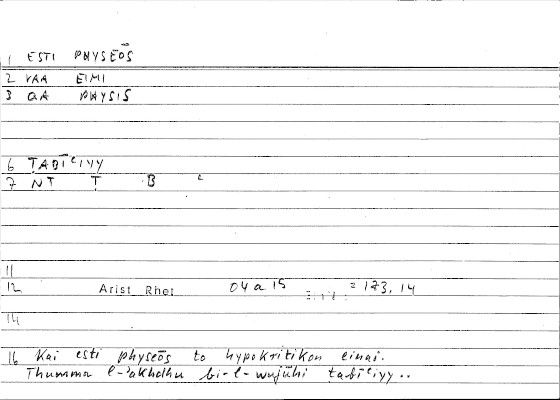 1 ESTI PHYSEŌS
2 VAA EIMI
3 QA PHYSIS
6 ṬABĪʿIYY
7 NT Ṭ B ʿ
11
12 Arist Rhet 04a15 = 173,14
14
16 Kai esti physeōs to hypokritikon einai.
Thumma l-ʾakhdhu bi-l-wujūhi ṭabīʿiyy..